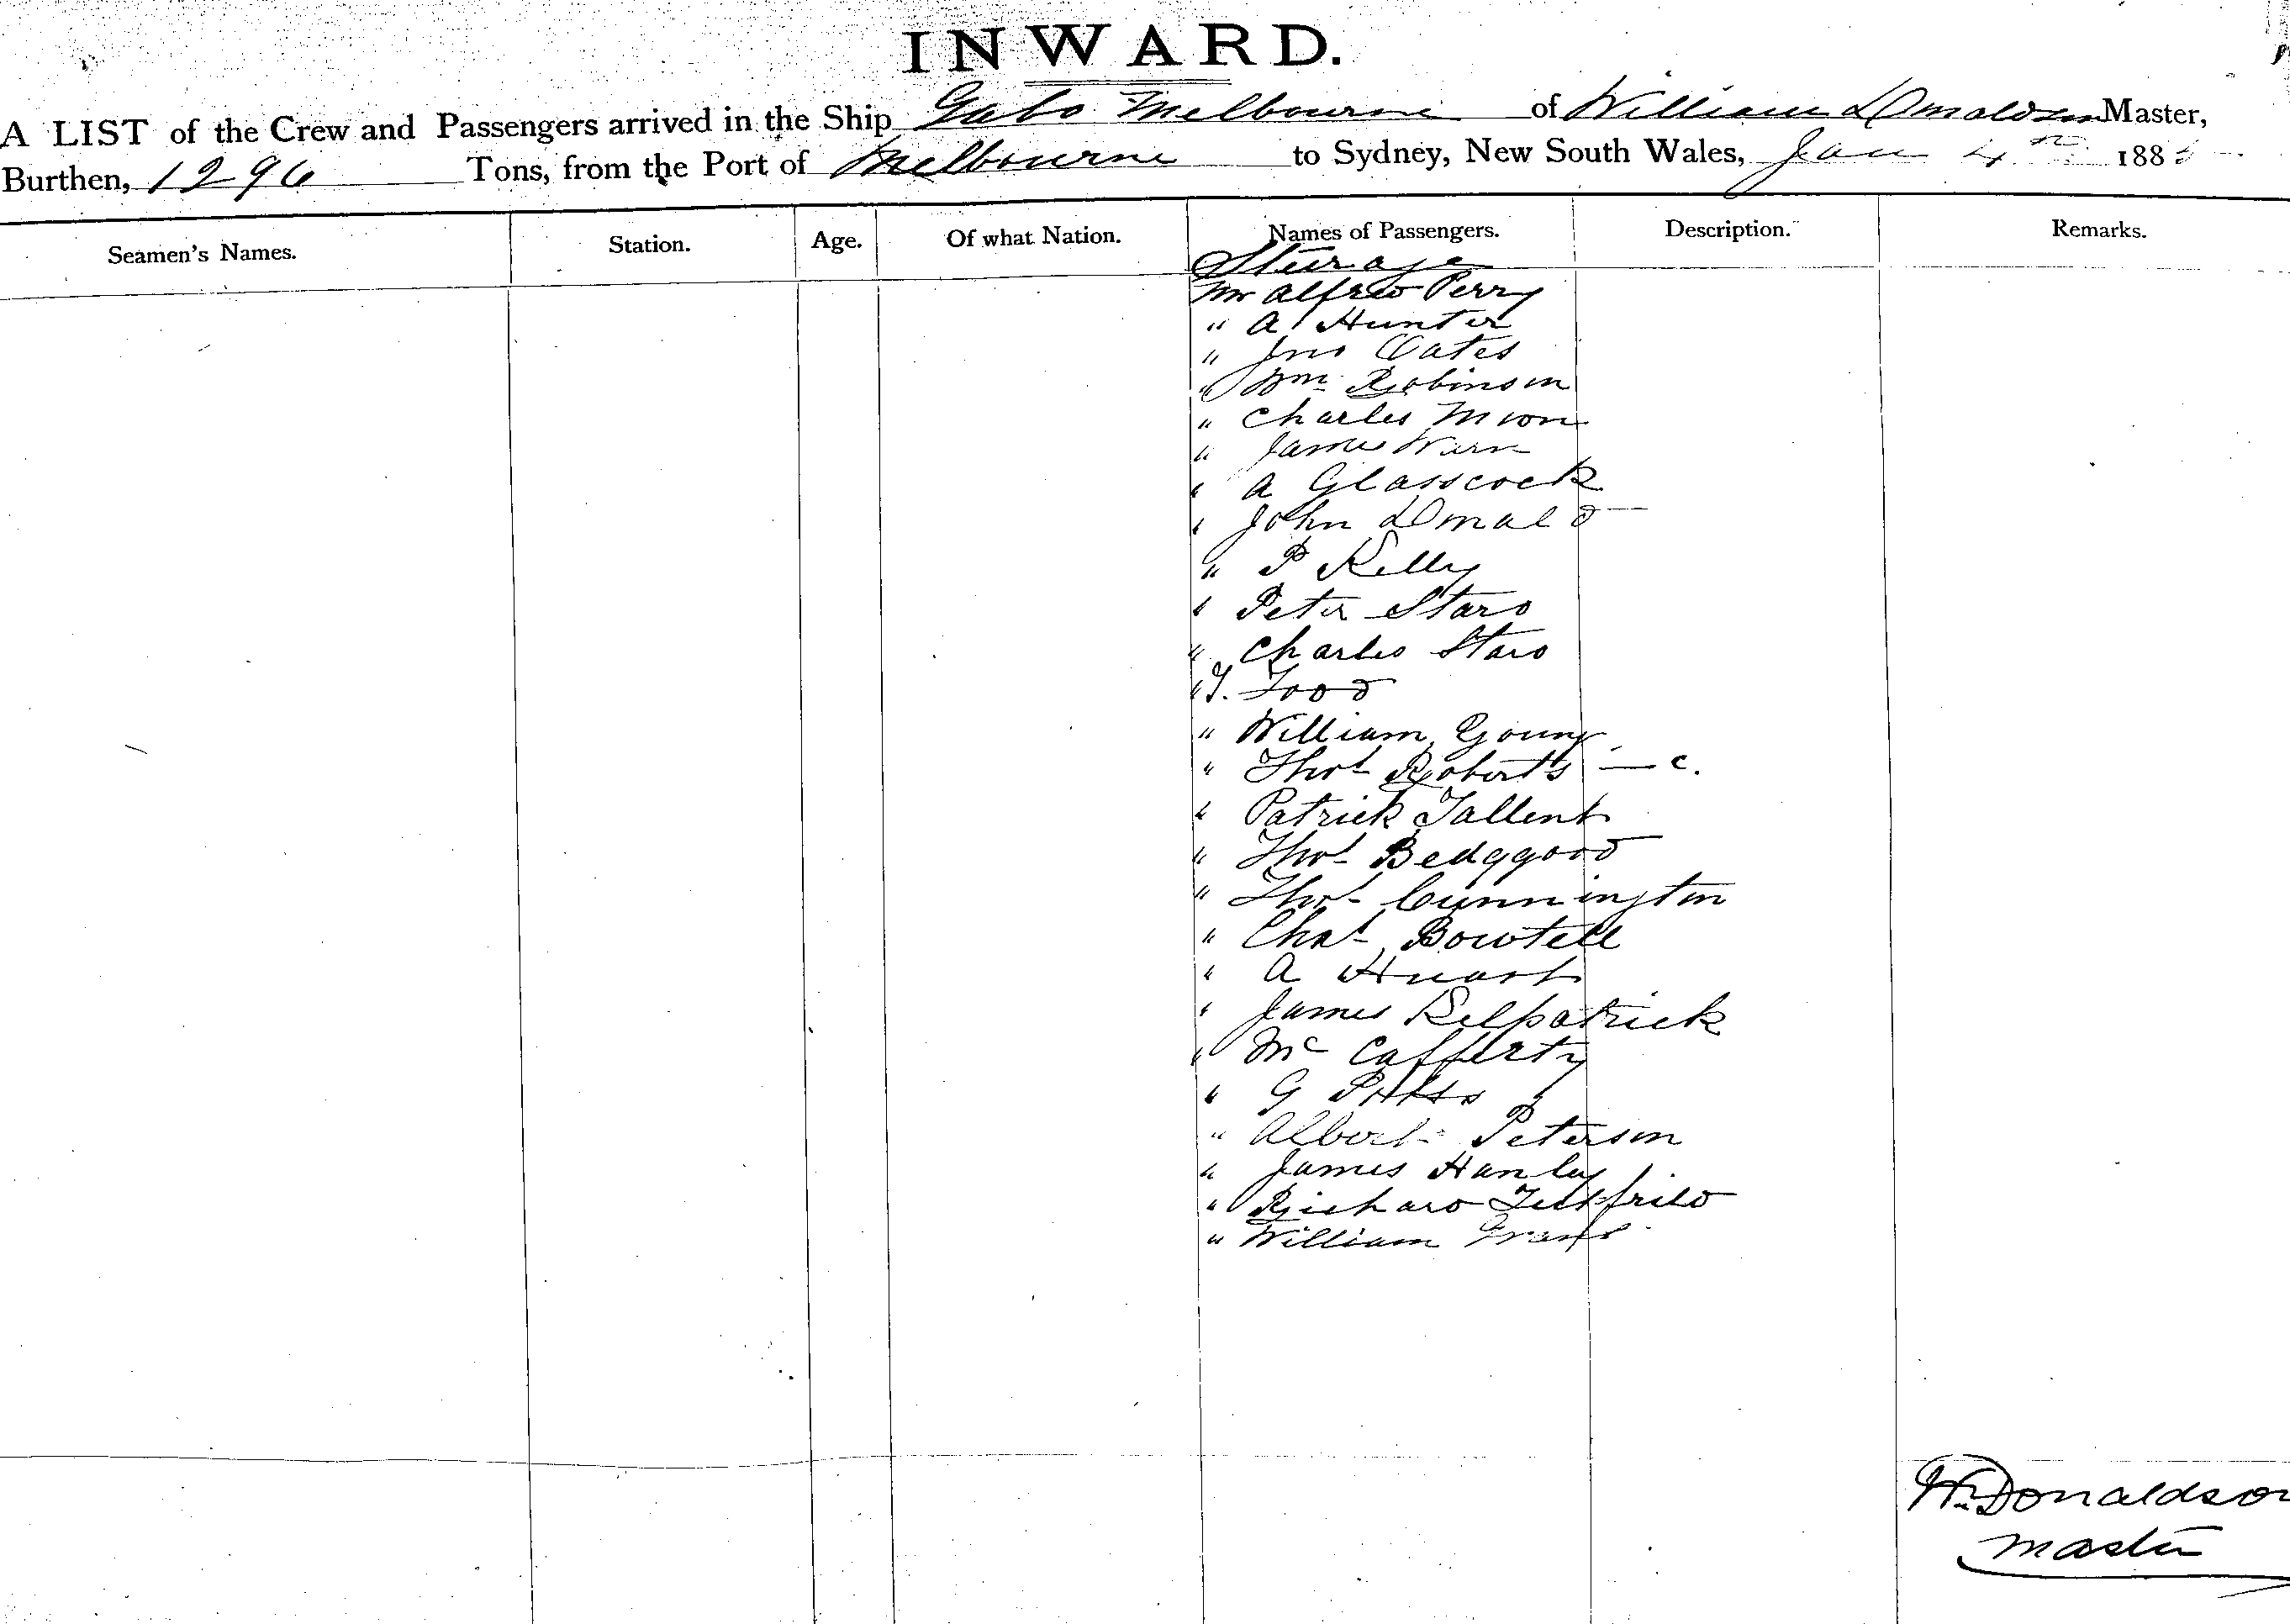 INWARD.
A LIST of the Crew and Passengers arrived in the Ship Gabo Melbourne of William Donaldson Master,
Burthen, 1296 Tons, from the Port of Melbourne to Sydney, New South Wales, Jan 4th 188
Seamen's Names. Station. Age. Of what Nation. Names of Passengers. Description. Remarks.
Steerage
Mr Alfred Perry
" A Hunter
" Jno Oates
" Wm Robinson
" Charles Moon
" James Warn
" A Glasscock
" John Donald
" P Kelly
" Peter Staro
" Charles Staro
" T. Food
" William Young
" Thos Roberts — c.
" Patrick Tallent
" Thos Bedggood
" Thos Cunnington
" Chas Bowtell
" A Huast
" James Kilpatrick
" Mc Cafferty
" G Potts
" Albert Peterson
" James Hanley
" Richard
" William Grant
Wm Donaldson
Master